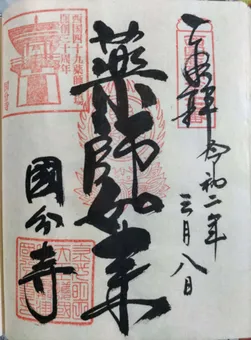 奉拜
令和二年
三月八日
薬師如来
國分寺
西国四十九薬師霊場
開創三十周年